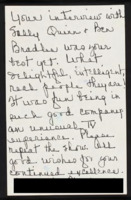 Your interview with
Sally Quinn & Ben
Bradlee was your
best yet. What
delightful, intelligent,
real people they are!
It was fun being in
such good company
an unusual TV
experience. Please
repeat the show. All
good wishes for your
continued excellence.